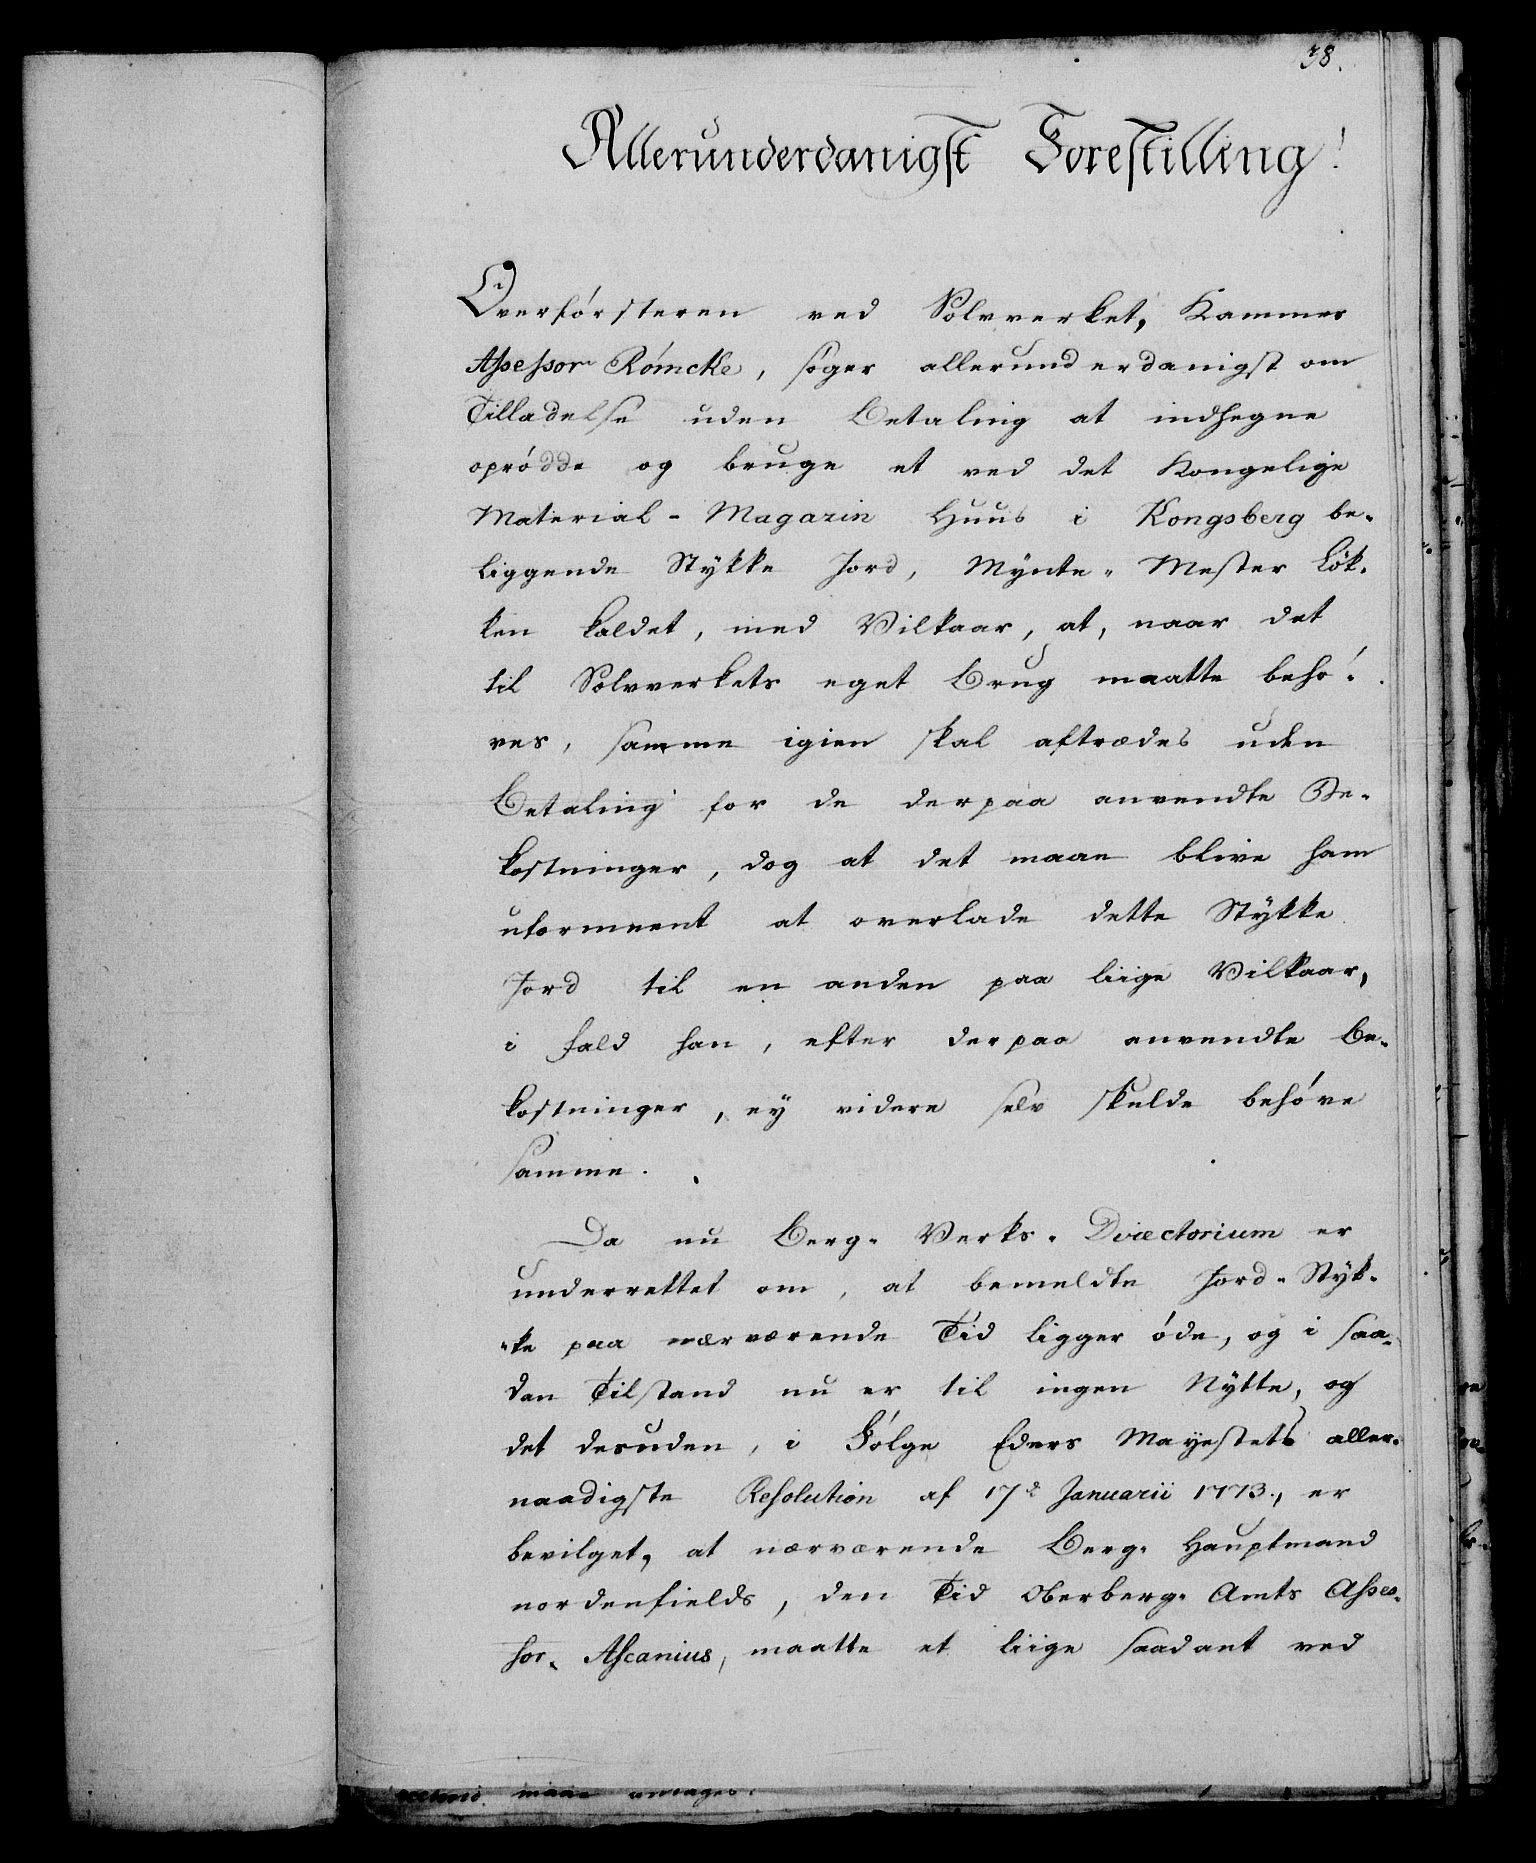 38.
Allerunderdanigst Forestilling!
Overförsteren ved Sölvverket, Kammer
Assessor Römcke, söger allerunderdanigst om
Tilladelse uden Betaling at indhegne
oprödde og bruge et ved det Kongelige
Material-Magazin Huus i Kongsberg be-
liggende Stÿkke Jord, Mÿnte-Mester Lök-
ken kaldet, med Vilkaar, at, naar det
til Sölvverkets eget Brug maatte behö-
ves, samme igien skal aftrædes uden
Betaling for de derpaa anvendte Be-
kostninger, dog at det maae blive ham
uformeent at overlade dette Stÿkke
Jord til en anden paa liige Vilkaar,
i fald han, efter derpaa anvendte Be-
kostninger, eÿ videre selv skulde behöve
samme.
Da nu Berg-Verks-Directorium er
underrettet om, at bemeldte Jord-Stÿk-
-ke paa nærværende Tid ligger öde, og i saa-
dan Tilstand nu er til ingen Nÿtte, og
det desuden, i Fölge Eders Maÿestets aller-
naadigste Resolution af 17d Januarii 1773., er
bevilget, at nærværende Berg-Hauptmand
nordenfields, den Tid Oberberg-Amts Asses-
sor Ascanius, maatte et liige saadant ved
maae antages.